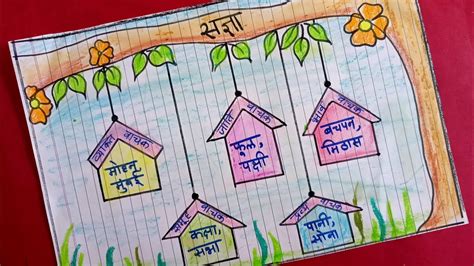 संज्ञा
व्यक्ति वाचक
मोहन,
मुंबई
जाति वाचक
फूल,
पक्षी
भाव वाचक
बचपन,
मिठास
समूह वाचक
कक्षा,
सभा
द्रव्य वाचक
पानी,
सोना